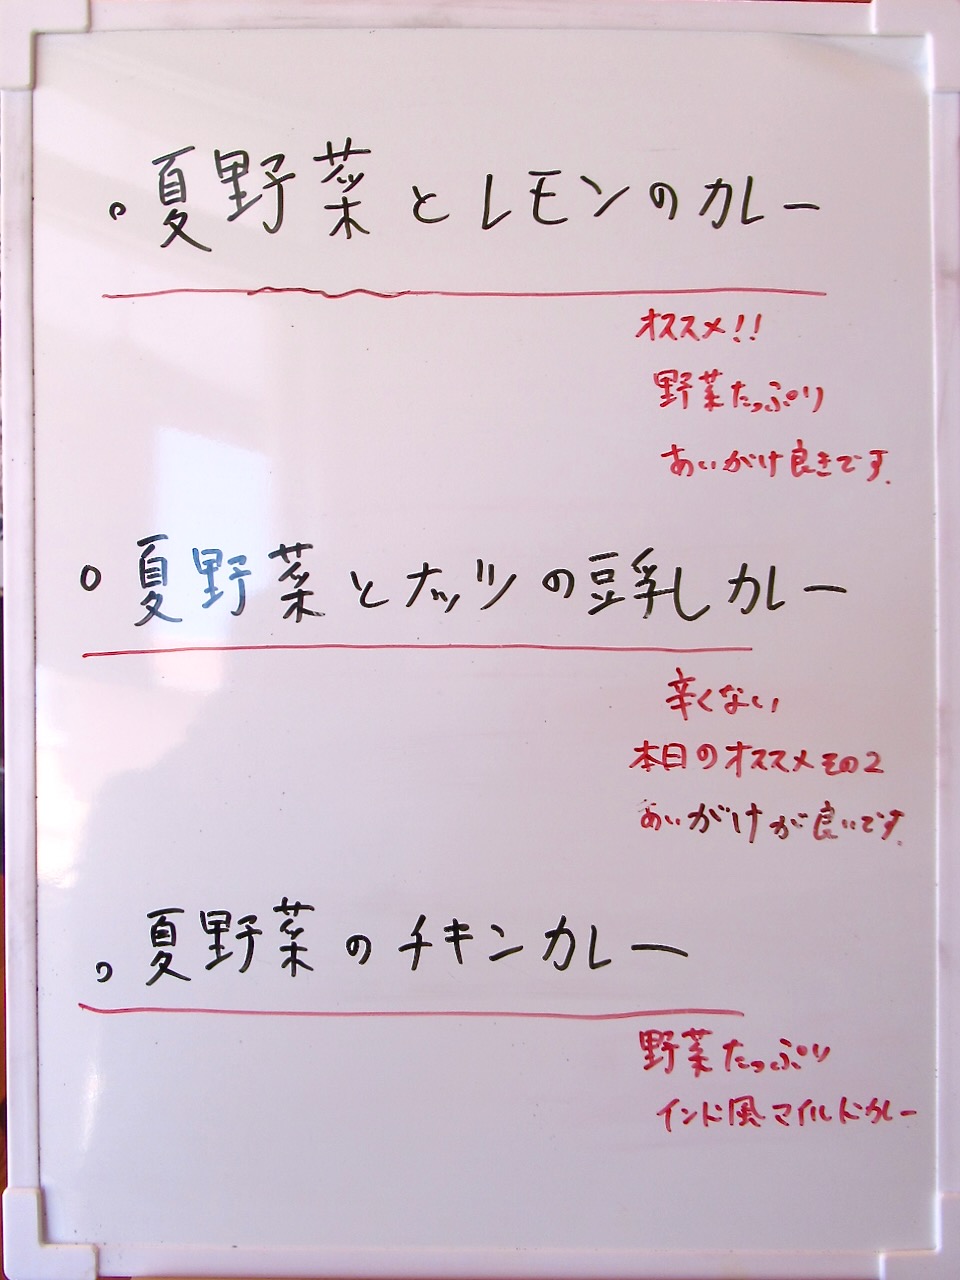 。夏野菜とレモンのカレー
オススメ!!
野菜たっぷり
あいがけ良きです.
○夏野菜とナッツの豆乳カレー
辛くない
本日のオススメその2
あいがけが良いです.
。夏野菜のチキンカレー
野菜たっぷり
インド風マイルドカレー